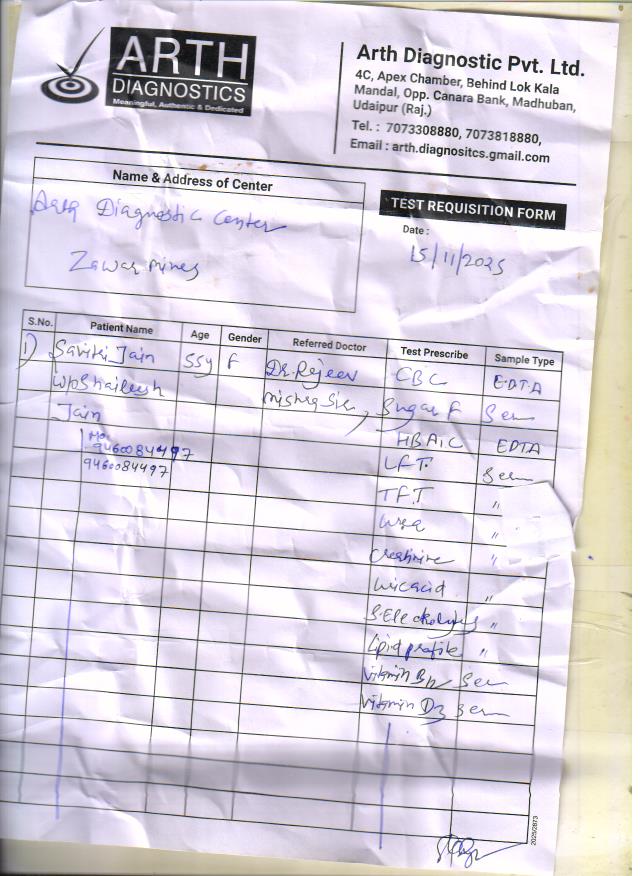 ARTH
DIAGNOSTICS
Meaningful, Authentic & Dedicated
Arth Diagnostic Pvt. Ltd.
4C, Apex Chamber, Behind Lok Kala
Mandal, Opp. Canara Bank, Madhuban,
Udaipur (Raj.)
Tel. : 7073308880, 7073818880,
Email : arth.diagnositcs.gmail.com
Name & Address of Center
Diagnostic Center
Zawar mines
TEST REQUISITION FORM
Date :
15/11/2025
S.No. Patient Name Age Gender Referred Doctor Test Prescribe Sample Type
1) Savitri Jain 55y F Dr. Rajeev CBC EDTA
w/o Shailesh Mishra Sir, Sugar F Ser
Jain HBA1C EDTA
Mo.
9460084497 LFT. Ser
9460084497
TFT "
Urea "
Creatinine "
Uric acid "
S. Electrolytes "
Lipid profile "
Vitamin B12 Ser
Vitamin D3 Ser
2025/2873